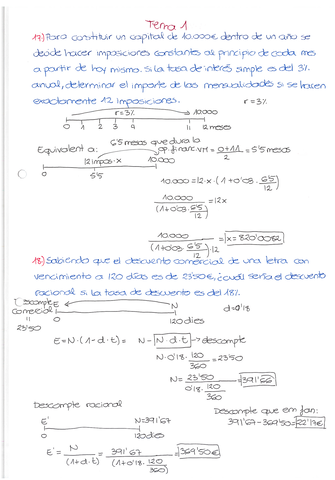 Tema 1
17) Para constituir un capital de 10.000€ dentro de un año se
decide hacer imposiciones constantes al principio de cada mes
a partir de hoy mismo. Si la tasa de interés simple es del 3%
anual, determinar el importe de las mensualidades si se hacen
exactamente 12 imposiciones.
r=3%
r=3%
10.000
0 1 2 3 4 11 12 meses
Equivalent a:
6'5 mesos que dura la
op. financ
VM = 0+11 / 2 = 5'5 mesos
12 impos·x
10.000
0
5'5
10.000 = 12·x·(1+0'03·6'5/12)
10.000 / (1+0'03·6'5/12) = 12x
10.000 / (1+0'03·6'5/12)·12 = x=820'0082
18) Sabiendo que el descuento comercial de una letra con
vencimiento a 120 días es de 23'50€, ¿cuál sería el descuento
racional si la tasa de descuento es del 18%.
Descompte
comercial
23'50
E
N
d=0'18
0
120 dies
E=N·(1-d·t)= N-N·d·t → descompte
N·0'18·120/360 = 23'50
N= 23'50 / 0'18·120/360 = 391'66
Descompte racional
E'
N=391'67
0
120 dies
Descompte que em fan:
391'67-369'50=22'17€
E'= N / (1+d·t) = 391'67 / (1+0'18·120/360) = 369'50€